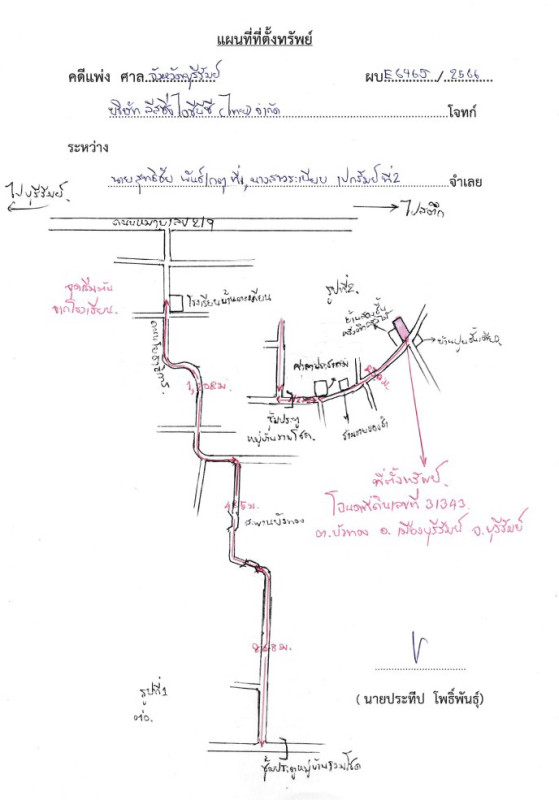 แผนที่ที่ตั้งทรัพย์
คดีแพ่ง ศาล จังหวัดบุรีรัมย์ ผบE6465 / 2566
บริษัท ลีสซิ่งไอซีบีซี (ไทย) จำกัด โจทก์
ระหว่าง
นายสุทธิชัย ที่1, นางสาวระเบียบ ที่2 จำเลย
ไปบุรีรัมย์
ไปสตึก
ถนนหมายเลข 219
จุดเริ่มต้น
จากโรงเรียน.
โรงเรียนบ้าน
รูปที่2.
บ้านสองชั้น
บ้านปูนชั้นเดียว
ศาลาประชาคม
ซุ้มประตู
หมู่บ้านรวมโชค.
ร้านขายของชำ
ที่ตั้งทรัพย์.
โฉนดที่ดินเลขที่ 31343.
ต.บัวทอง อ. เมืองบุรีรัมย์ จ.บุรีรัมย์
สะพานบัวทอง
รูปที่1
ต่อ.
(นายประทีป โพธิ์พันธุ์)
ซุ้มประตูหมู่บ้านรวมโชค